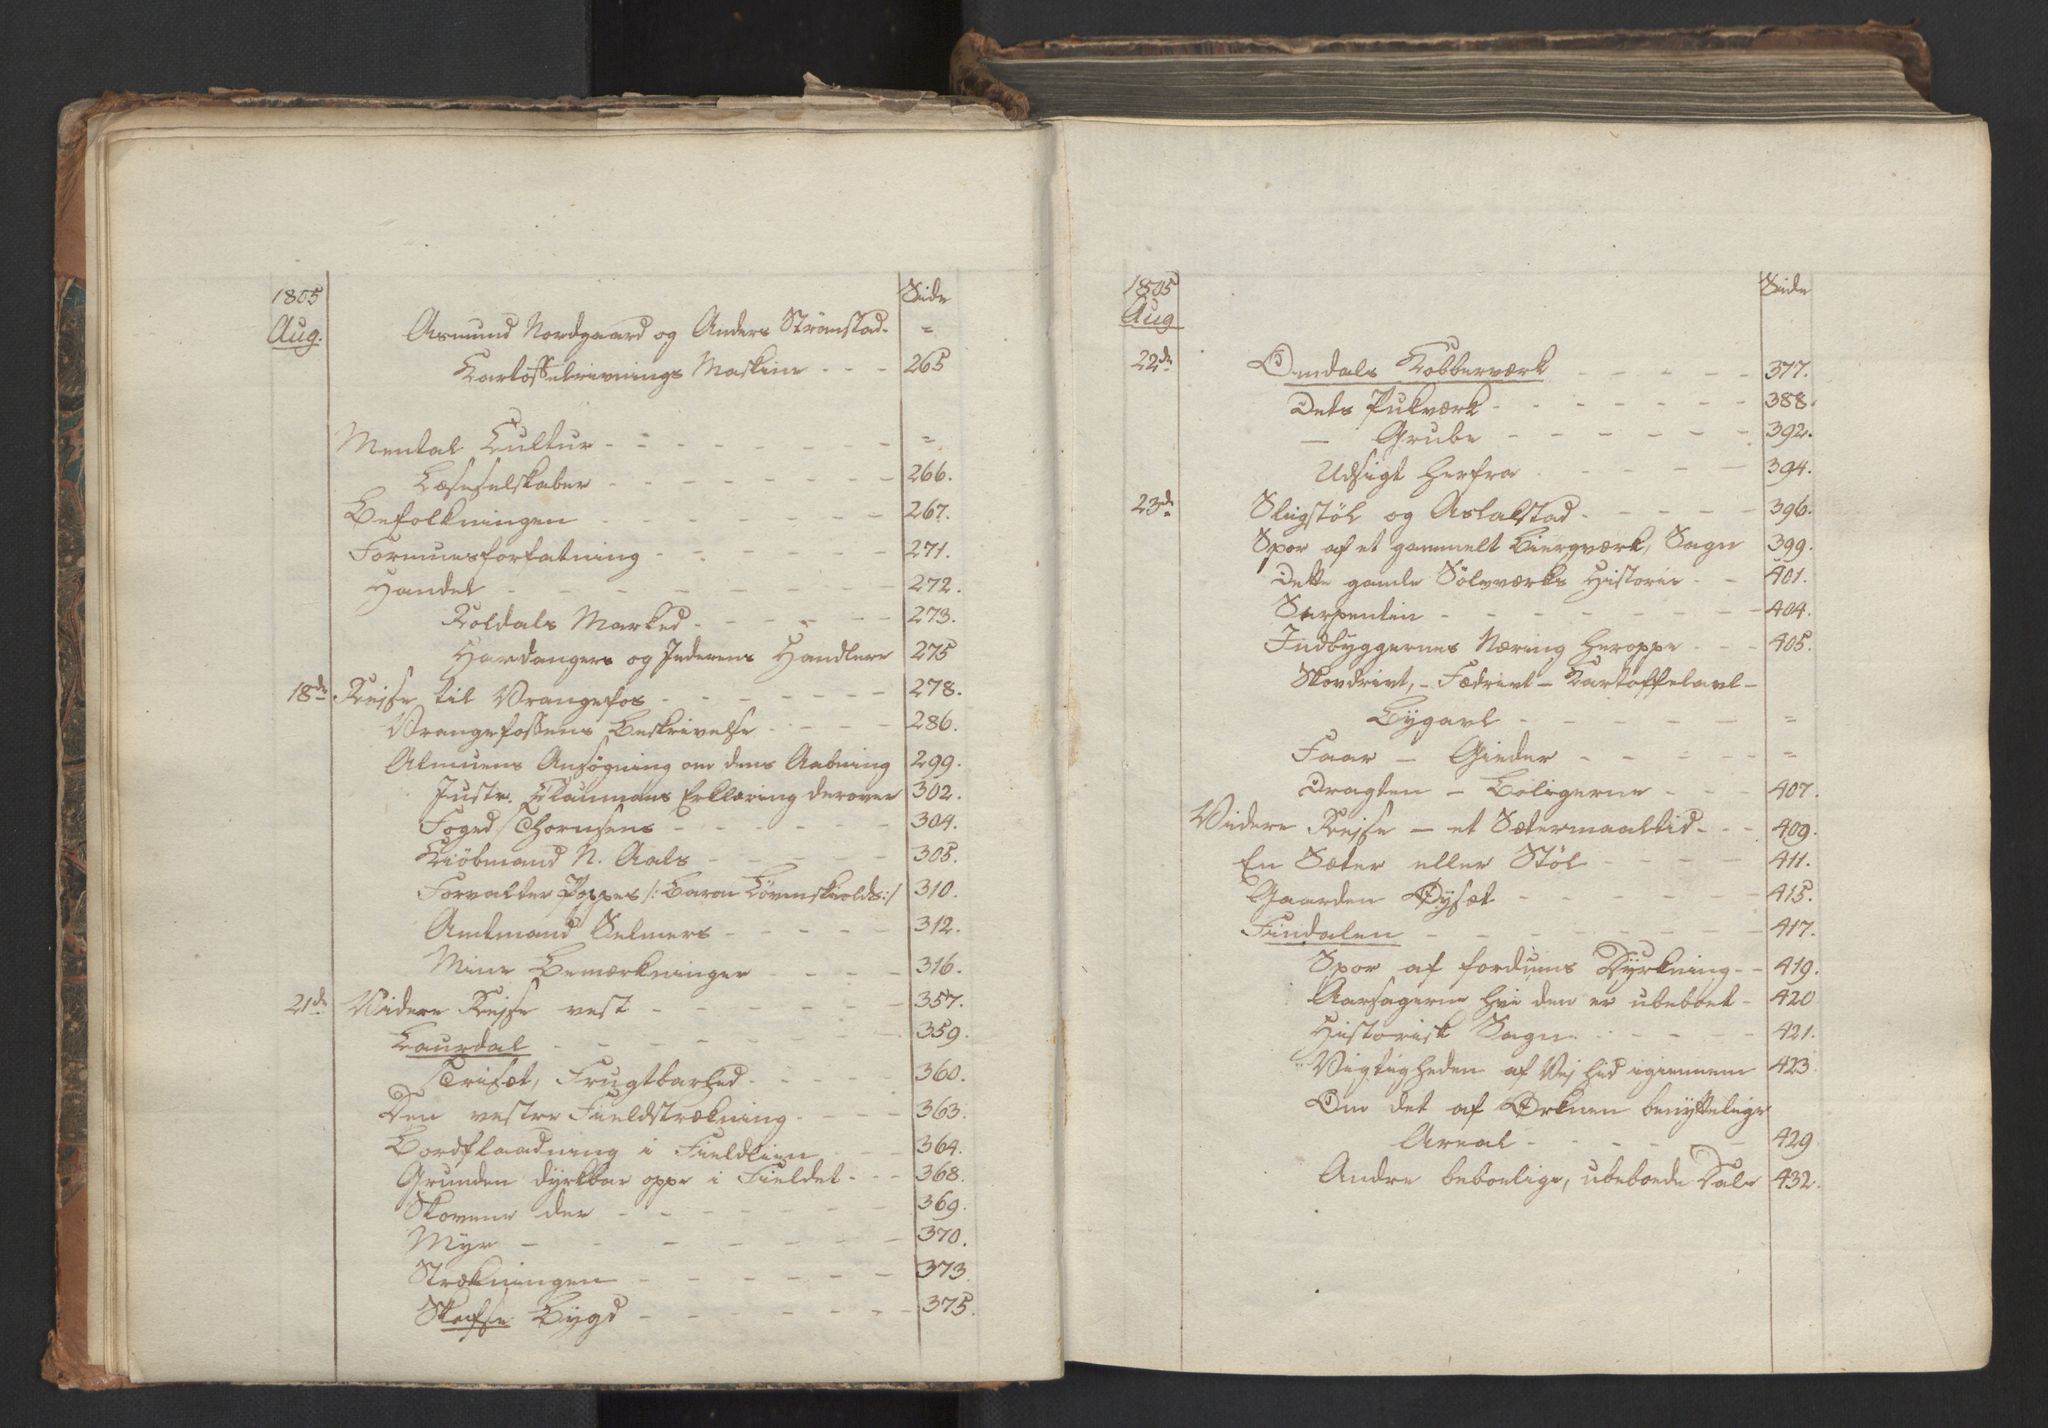 1805 Side
Aug. Asmund Nordgaard og Anders Strönstad. =
Kartoffelrivnings Maskine - - - 265
Mental Cultur - - - - - - - =
Læseselskaber - - - - - - - 266.
Befolkningen - - - - - - - 267.
Formuesforfatning - - - - - - 271.
Handel - - - - - - - - 272.
Roldals Marked - - - - - - 273.
Hardangers og Jederens Handlere 275
18de Rejse til Vrangefos - - - - - - 278.
Vrangefossens Beskrivelse - - - - 286.
Almuens Ansøgning om dens Aabning 299.
Justr. Blaumans Erklæring derover 302.
Foged Thornsens - - - - - - 304.
Kiöbmand N. Aals - - - - - 305.
Forvalter Poppes /: Baron Lövenskiolds :/ 310.
Amtmand Selmers - - - - - 312.
Mine Bemærkninger - - - - 316.
21de Videre Rejse vest - - - - - - 357.
Laurdal - - - - - - - 359.
Triset, Frugtbarhed - - - - - 360.
Den vestre Fieldstrækning - - - - 363.
Bordflaadning i Fieldlien - - - 364.
Grunden dyrkbar oppe i Fieldet - - - 368.
Skovene der - - - - - - - 369.
Myr - - - - - - - - 370.
Strækningen - - - - - - 373.
Skafse Bygd - - - - - - - 375.
1805 Side
Aug
22de Omdals Kobberværk - - - - - 377.
Dets Pukværk - - - - - - - 388.
— Grube - - - - - - 392.
Udsigt herfra - - - - - 394.
23de Slugstöl og Aslalstad - - - - - 396.
Spor af et gammelt Biergværk, Sagn 399.
Dette gamle Sölvværks Historie - - 401.
Serpentin - - - - - - - - 404.
Indbyggernes Næring heroppe - - - 405.
Skovdrivt, - Fædrivt - Kartoffelavl -
Bygavl - - - - - - =
Faar — Gieder - - - - - =
Dragten — Boligerne - - - 407.
Videre Rejse — et Sætermaaltid - - - 409.
En Sæter eller Stöl - - - - 411.
Gaarden Dyset - - - - - - 415.
Findalen - - - - - - - 417.
Spor af fordums Dyrkning - - 419.
Aarsagerne hvi den er ubeboet - 420
Historisk Sagn - - - - - 421.
Vigtigheden af Vej hid igiennem 423
Om det af Ørknen benyttelige
Areal - - - - - - 429.
Andre beboelige, ubeboede Dale 432.